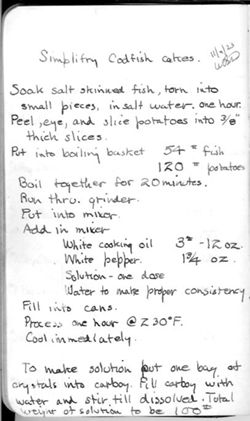 Simplifry Codfish cakes.
Soak salt skinned fish, torn into
small pieces, in salt water. one hour.
Peel, eye, and slice potatoes into 3/8"
thick slices.
Put into boiling basket 54# fish
120# potatoes
Boil together for 20 minutes.
Run thru. grinder.
Put into mixer.
Add in mixer
White cooking oil 3# - 12 oz.
White pepper. 1 3/4 oz.
Solution - one dose
Water to make proper consistency
Fill into cans.
Process one hour @ 230°F.
Cool immediately.
To make solution put one bag of
crystals into carboy. Fill carboy with
water and stir till dissolved. Total
weight of solution to be 100#